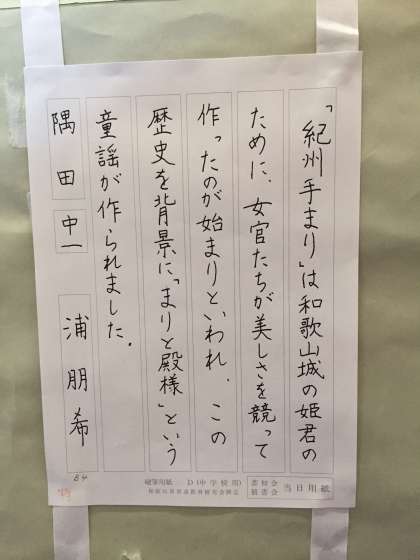 「紀州手まり」は和歌山城の姫君の
ために、女官たちが美しさを競って
作ったのが始まりといわれ、この
歴史を背景に「まりと殿様」という
童謡が作られました。
隅田 中一 浦朋希
当日用紙
硬筆用紙 D(中学校用)